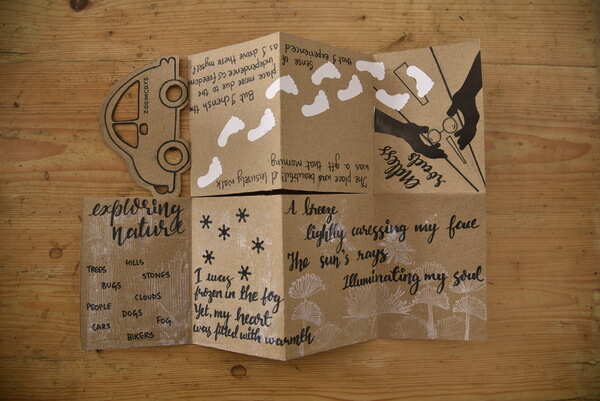 The place was beautiful
leisurely walk
was a gift that morning
But I cherish the
place more due to the
Sense of
independence & freedom
that I experienced
as I drove there myself
endless
roads
exploring
nature
TREES
HILLS
STONES
BUGS
CLOUDS
PEOPLE
DOGS
FOG
CARS
BIKERS
I was
frozen in the fog
Yet, my heart
was filled with warmth
A breeze
lightly caressing my face
The sun's rays
Illuminating my soul